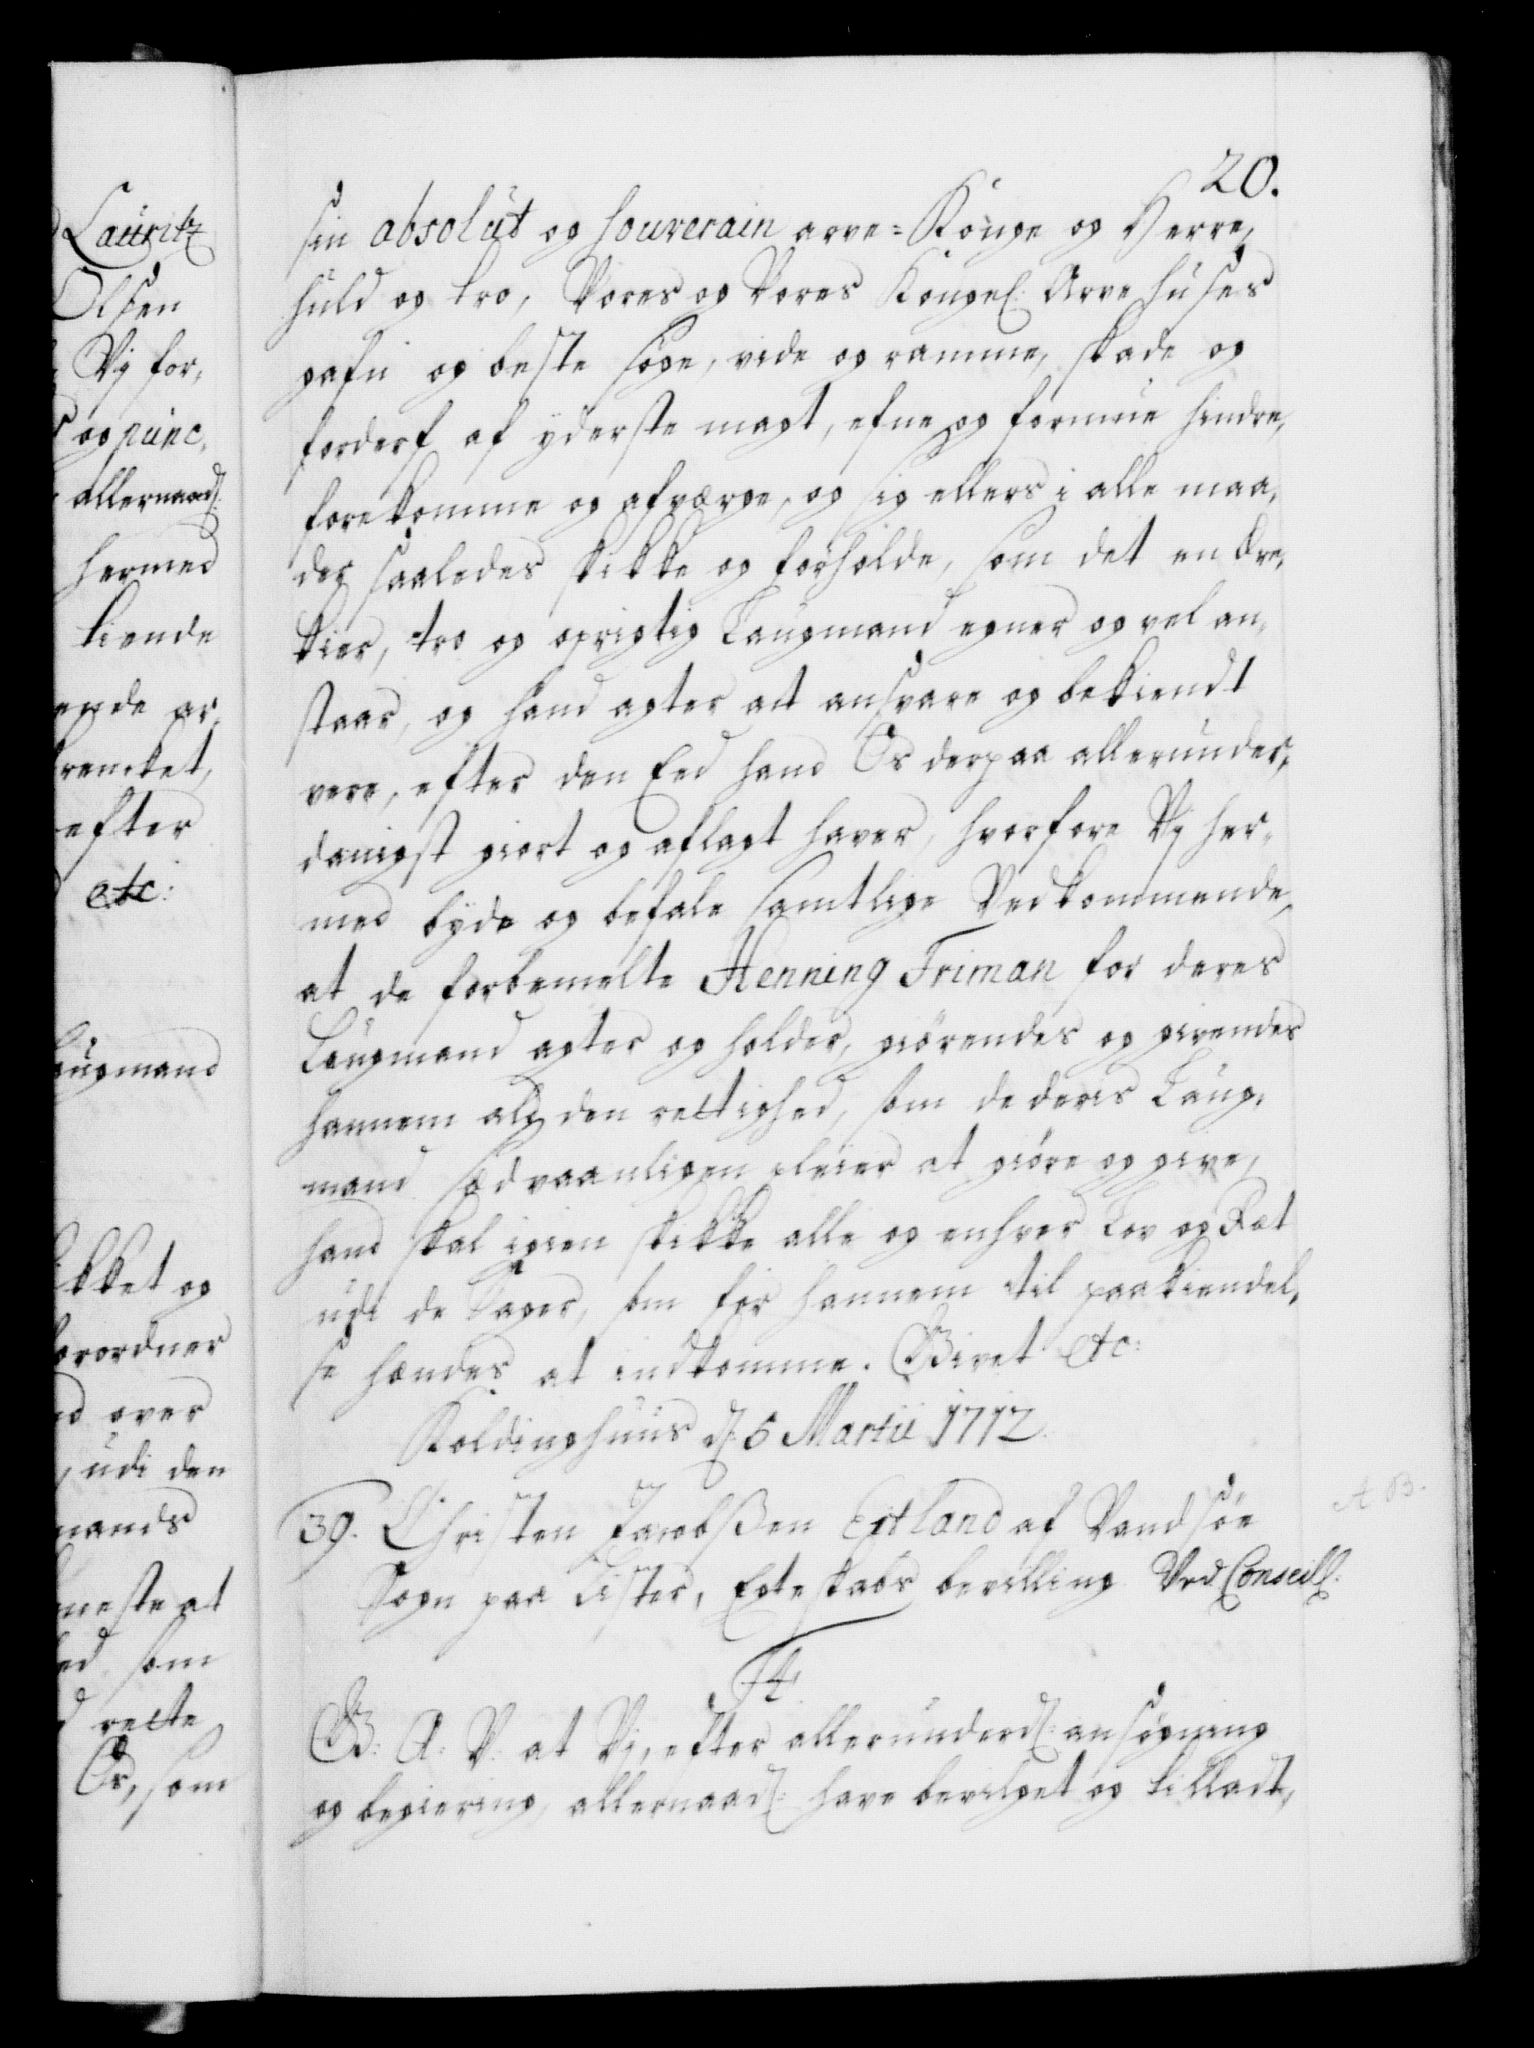 20.
sin absolut og souverain arve-Konge og Herre,
huld og tro, Vores og Vores Kongel: Arve Huses
gafn og beste søge, vide og ramme, skade og
forderf af yderste magt, efne og formue hindre,
forekomme og afværge, og sig ellers i alle maa,
der saaledes skikke og forholde, som det en ære,
kier, tro og oprigtig Laugmand egner og vel an,
staar, og hand agter at ansvare og bekiendt
vere, efter den Eed hand Os derpaa allerunder,
danigst giort og aflagt haver, hvorfore Vj her,
med byde og befale samtlige Vedkommende,
at de forbemelte Henning Friman for deres
Laugmand agter og holder, giørendes og givendes
hannem ald den rettighed, som de deris Laug,
mand sædvaanligen pleier at giøre og give,
hand skal igien skikke alle og enhver Lov og Ræt
udi de Sager, som for hannem til paakiendel,
se hændes at indkomme. Givet etc:
Koldinghuus d. 5 Martii 1712.
39. Christen Jacobßen Eitland af Vandsøe
Sogn paa Lister, Egteskabs bevilling Ved Conseill:
G: A: V: at Vj, efter allerunderd: ansøgning
og begiering, allernaad: have bevilget og tilladt,
A B.
Lauritz
Olsen
Vj for,
og punc,
allernaad:
hermed
tiende
efter
etc:
augmand
ikket og
forordner
over
udi den
mands
meste at
som
rette
Os, som